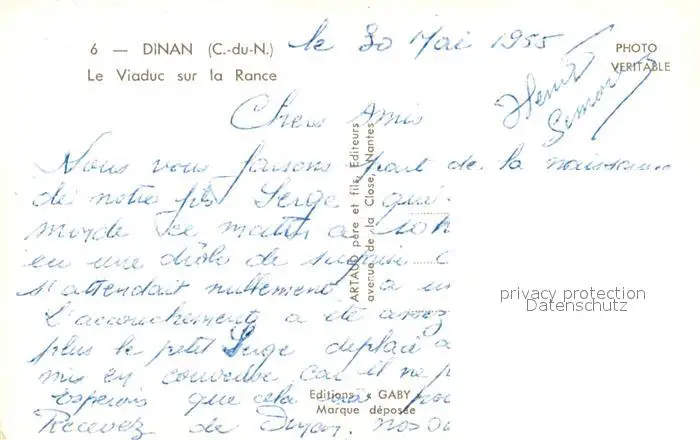 6 — DINAN (C.-du-N.) le 30 Mai 1955
PHOTO
VÉRITABLE
Le Viaduc sur la Rance
Henri
Simon
Chers Amis
Nous vous faisons part de la naissance
de notre fils Serge qui
monde ce matin à 10 h
eu une drôle de surprise
s'attendait nullement à un
L'accouchement a été assez
plus le petit Serge déplacé a
mis en couveuse car il ne p
Espérons que cela
Recevez de Dinan. nos
ARTAUD père et fils, Editeurs
avenue de la Close, Nantes
Editions « GABY »
Marque déposée
privacy protection
Datenschutz